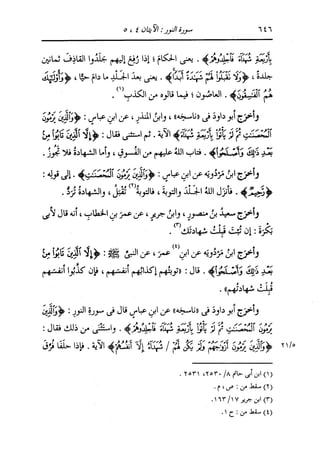 ٦٤٦ سورة النور : الآيتان ٤ ، ٥
بِأَرْبَعَةِ شُهَدَاءَ فَاجْلِدُوهُمْ﴾ . يعنى الحكام ؛ إذا رُفِع إليهم جلَدوا القاذفَ ثمانين
جلدة ، ﴿وَلَا تَقْبَلُوا لَهُمْ شَهَادَةً أَبَدًا﴾ . يعنى بعدَ الجلدِ ما دام حيًّا ، ﴿وَأُولَئِكَ
هُمُ الْفَاسِقُونَ﴾ . العاصُون ؛ فيما قالوه من الكذبِ(١) .
وأخرَج أبو داودَ فى «ناسخِه» ، وابنُ المنذرِ ، عن ابنِ عباسٍ : ﴿وَالَّذِينَ يَرْمُونَ
الْمُحْصَنَاتِ ثُمَّ لَمْ يَأْتُوا بِأَرْبَعَةِ شُهَدَاءَ﴾ الآية . ثم استثنى فقال : ﴿إِلَّا الَّذِينَ تَابُوا مِنْ
بَعْدِ ذَلِكَ وَأَصْلَحُوا﴾ . فتاب اللهُ عليهم من الفُسوقِ ، وأما الشهادةُ فلا تجوزُ .
وأخرَج ابنُ مَرْدُويَه عن ابنِ عباسٍ : ﴿وَالَّذِينَ يَرْمُونَ الْمُحْصَنَاتِ﴾ . إلى قولِه :
﴿رَحِيمٌ﴾ . فأنزَل اللهُ الجلدَ والتوبةَ ، فالتوبةُ(٢) تُقبَلُ ، والشهادةُ تُرَدُّ .
وأخرَج سعيدُ بنُ منصورٍ ، وابنُ جريرٍ ، عن عمرَ بنِ الخطابِ ، أنه قال لأبى
بَكْرَةَ : إن تُبْتَ قَبِلتُ شهادتَك(٣) .
وأخرَج ابنُ مَرْدُويَه عن ابنِ(٤) عمرَ ، عن النبىِّ ﷺ : ﴿إِلَّا الَّذِينَ تَابُوا مِنْ
بَعْدِ ذَلِكَ وَأَصْلَحُوا﴾ . قال : «توبتُهم إكذابُهم أنفسَهم ، فإن كذَّبوا أنفسَهم
قُبِلَت شهادتُهم» .
وأخرَج أبو داودَ فى «ناسخِه» عن ابنِ عباسٍ قال فى سورةِ النورِ : ﴿وَالَّذِينَ
يَرْمُونَ الْمُحْصَنَاتِ ثُمَّ لَمْ يَأْتُوا بِأَرْبَعَةِ شُهَدَاءَ فَاجْلِدُوهُمْ﴾ . واستثنى من ذلك فقال :
٢١/٥ ﴿وَالَّذِينَ يَرْمُونَ أَزْوَاجَهُمْ وَلَمْ يَكُنْ لَهُمْ / شُهَدَاءُ إِلَّا أَنْفُسُهُمْ﴾ الآية . فإذا حلَفا فُرِّق
(١) ابن أبى حاتم ٨/ ٢٥٣٠، ٢٥٣١ .
(٢) سقط من : ص ، م .
(٣) ابن جرير ١٧/ ١٦٣ .
(٤) سقط من : ح ١ .